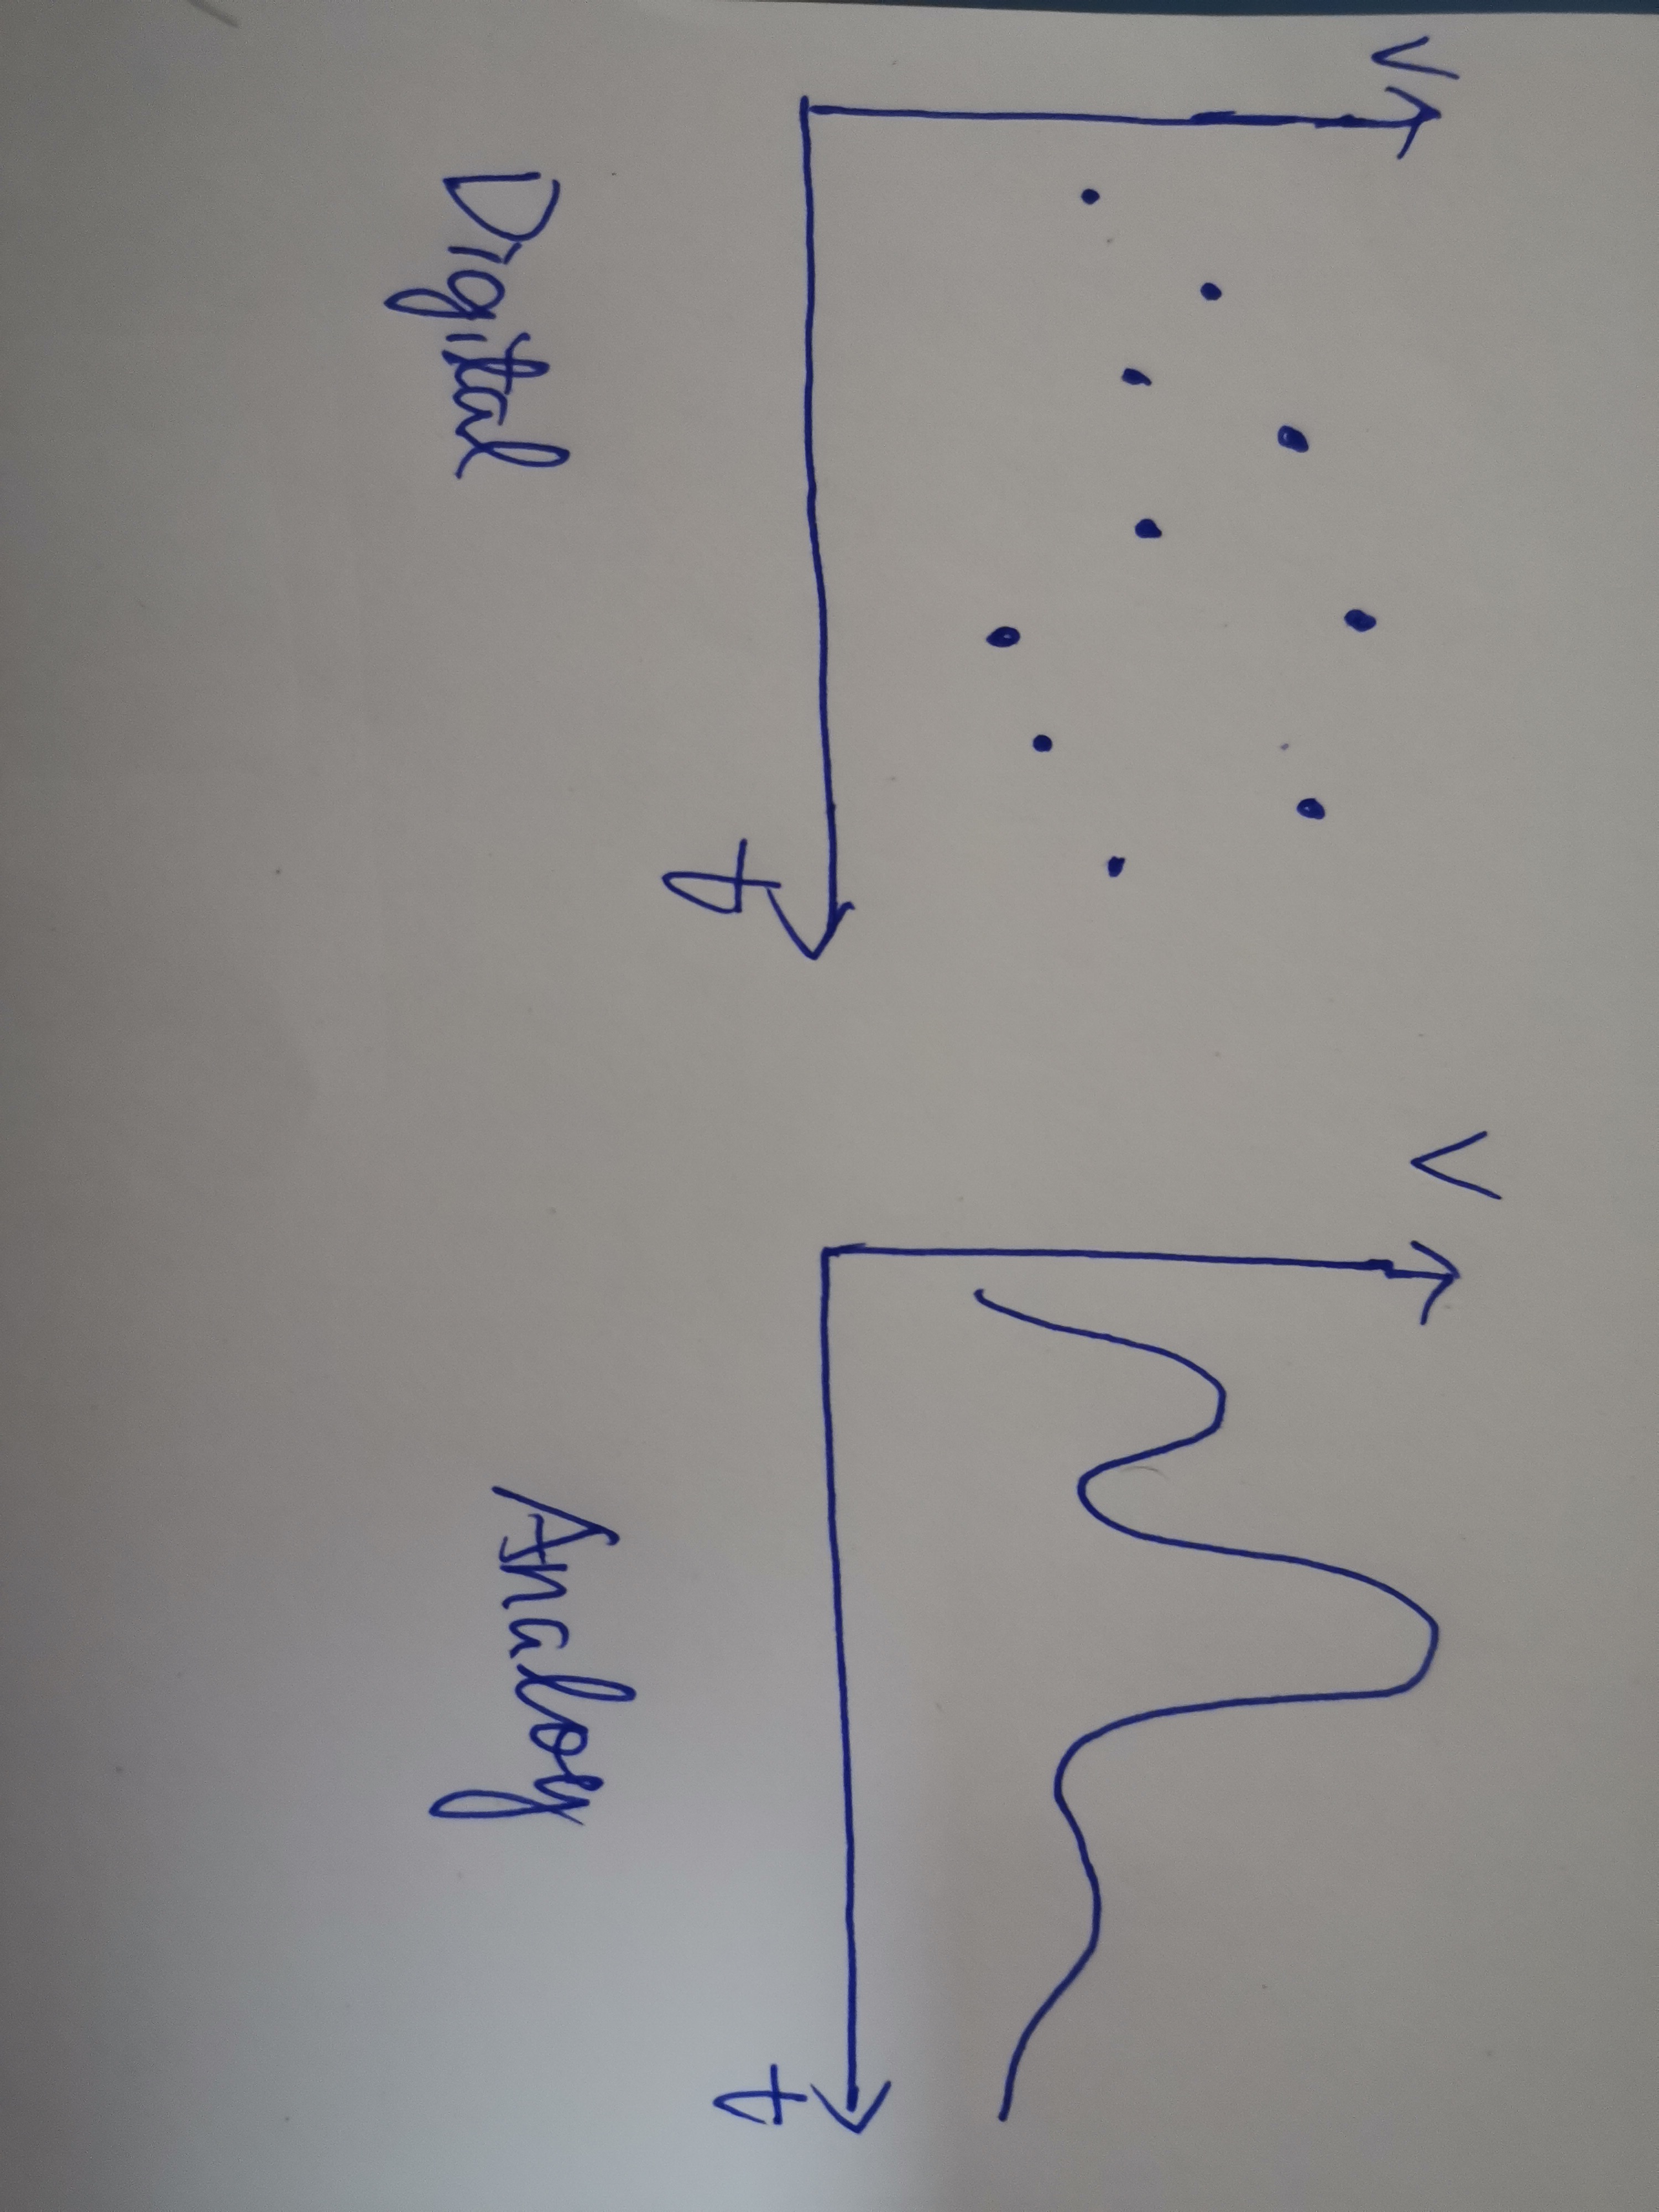 V
t
Digital
V
t
Analog